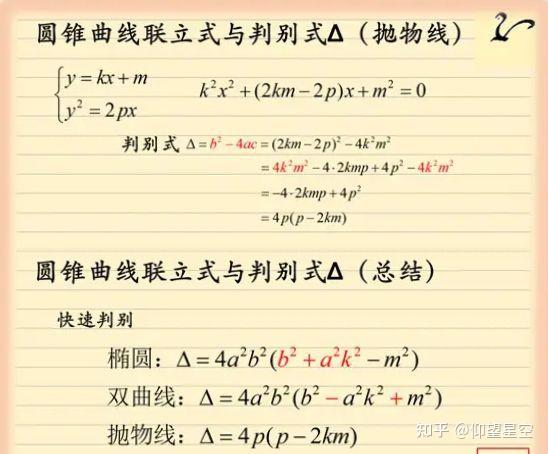 圆锥曲线联立式与判别式Δ（抛物线）
{y = kx + m
y² = 2px
k²x² + (2km − 2p)x + m² = 0
判别式 Δ = b² − 4ac = (2km − 2p)² − 4k²m²
= 4k²m² − 4·2kmp + 4p² − 4k²m²
= −4·2kmp + 4p²
= 4p(p − 2km)
圆锥曲线联立式与判别式Δ（总结）
快速判别
椭圆：Δ = 4a²b²(b² + a²k² − m²)
双曲线：Δ = 4a²b²(b² − a²k² + m²)
抛物线：Δ = 4p(p − 2km)
知乎 @仰望星空